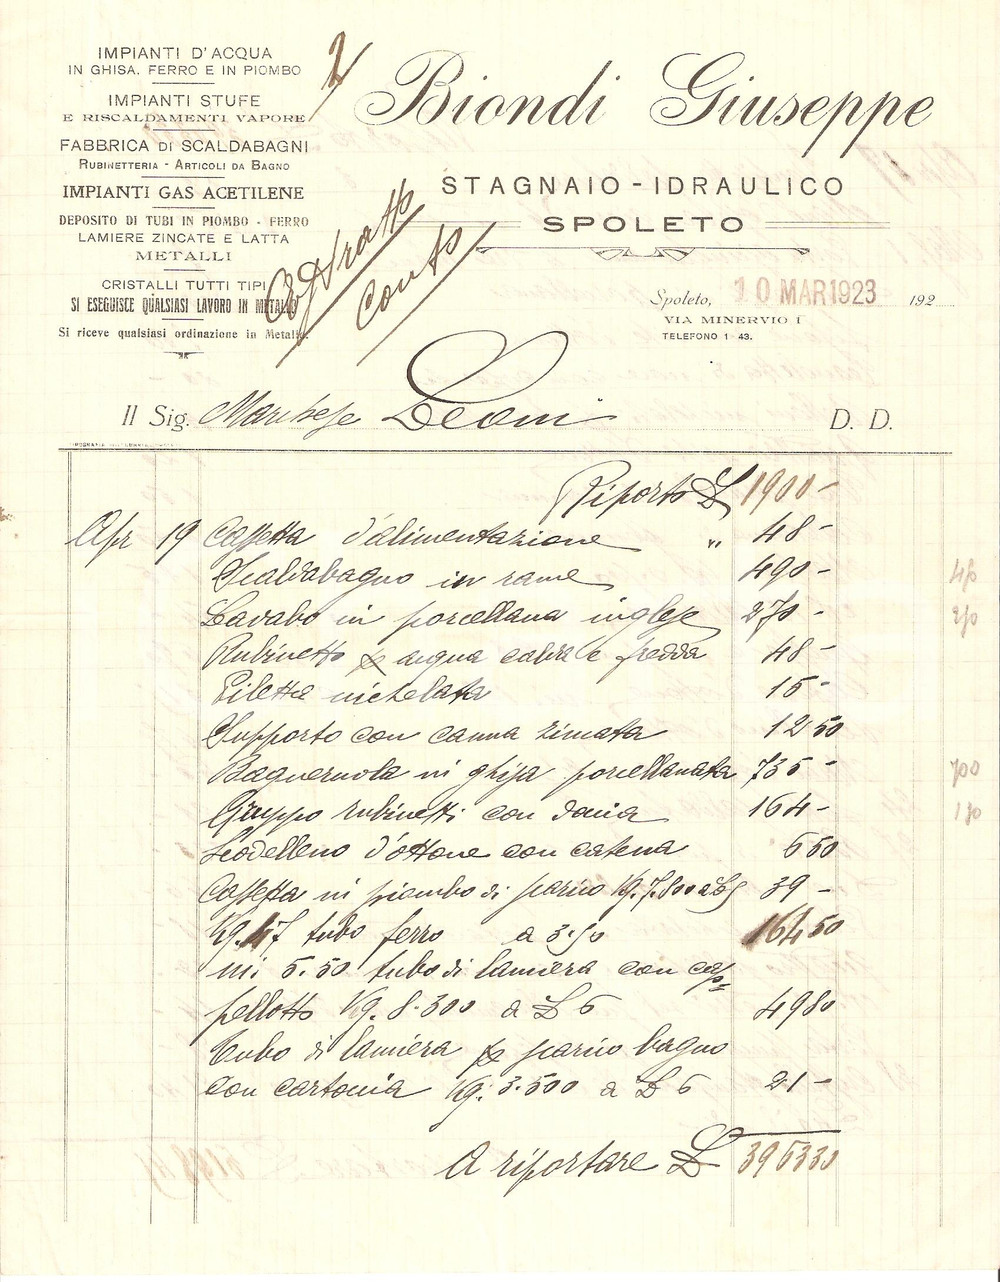 IMPIANTI D'ACQUA
IN GHISA. FERRO E IN PIOMBO
IMPIANTI STUFE
E RISCALDAMENTI VAPORE
FABBRICA DI SCALDABAGNI
RUBINETTERIA - ARTICOLI DA BAGNO
IMPIANTI GAS ACETILENE
DEPOSITO DI TUBI IN PIOMBO - FERRO
LAMIERE ZINCATE E LATTA
METALLI
CRISTALLI TUTTI TIPI
SI ESEGUISCE QUALSIASI LAVORO IN METALLO
Si riceve qualsiasi ordinazione in Metallo.
2
Biondi Giuseppe
STAGNAIO - IDRAULICO
SPOLETO
Estratto
Conto
Spoleto, 10 MAR 1923 192
VIA MINERVIO 1
TELEFONO 1-43.
Il Sig. Marchese Leoni D. D.
Riporto L 1900 -
Apr 19 Cassetta d'alimentazione " 48 -
Scaldabagno in rame 490 -
Lavabo in porcellana inglese 270 -
Rubinetto acqua calda e fredda 48 -
Piletta nichelata 15 -
Supporto con canna 12 50
Bagnarola in ghisa porcellanata 735 -
Gruppo rubinetti con 164 -
d'ottone con catena 6 50
Cassetta in piombo di Kg. 7.800 a L 5 39 -
Kg. 47 tubo ferro a 3.50 164 50
m. 5.50 tubo di lamiera con cap=
pellotto Kg. 8.300 a L 6 49 80
Tubo di lamiera bagno
con Kg. 3.500 a L 6 21 -
A riportare L 3963 30
700